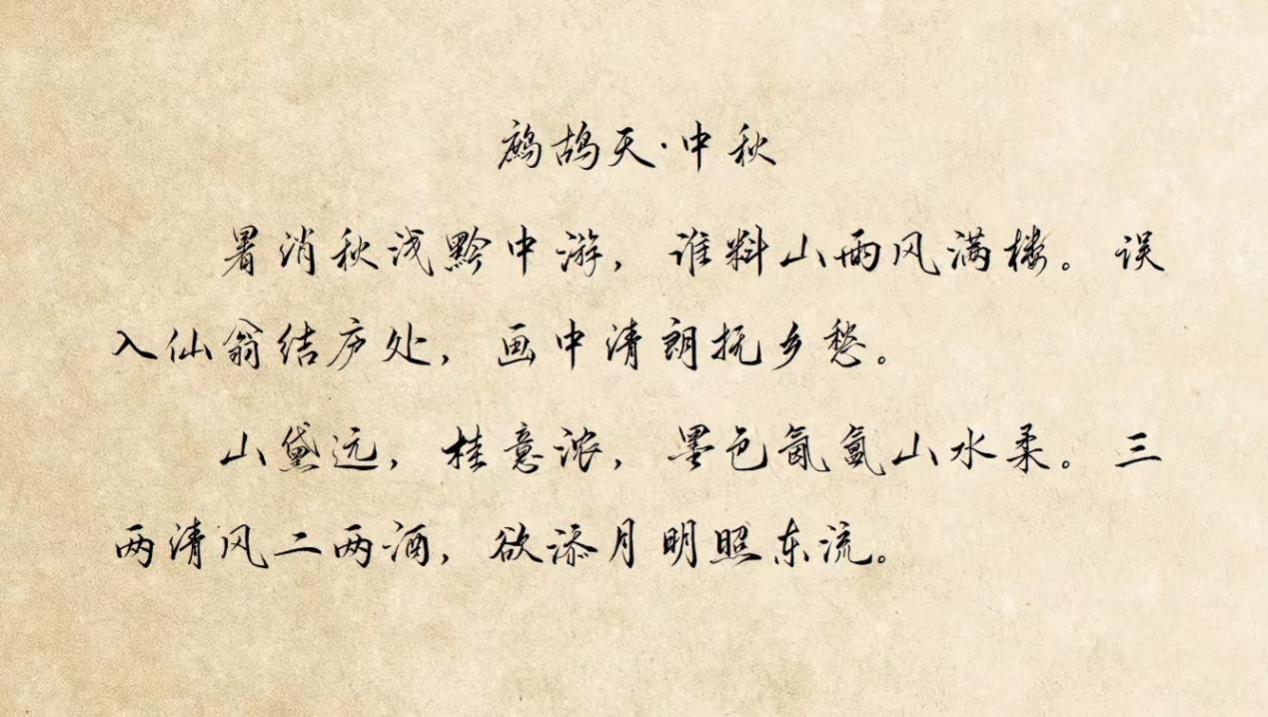 鹧鸪天·中秋
暑消秋浅黔中游，谁料山雨风满楼。误
入仙翁结庐处，画中清朗抚乡愁。
山黛远，桂意浓，墨色氤氲山水柔。三
两清风二两酒，欲添月明照东流。